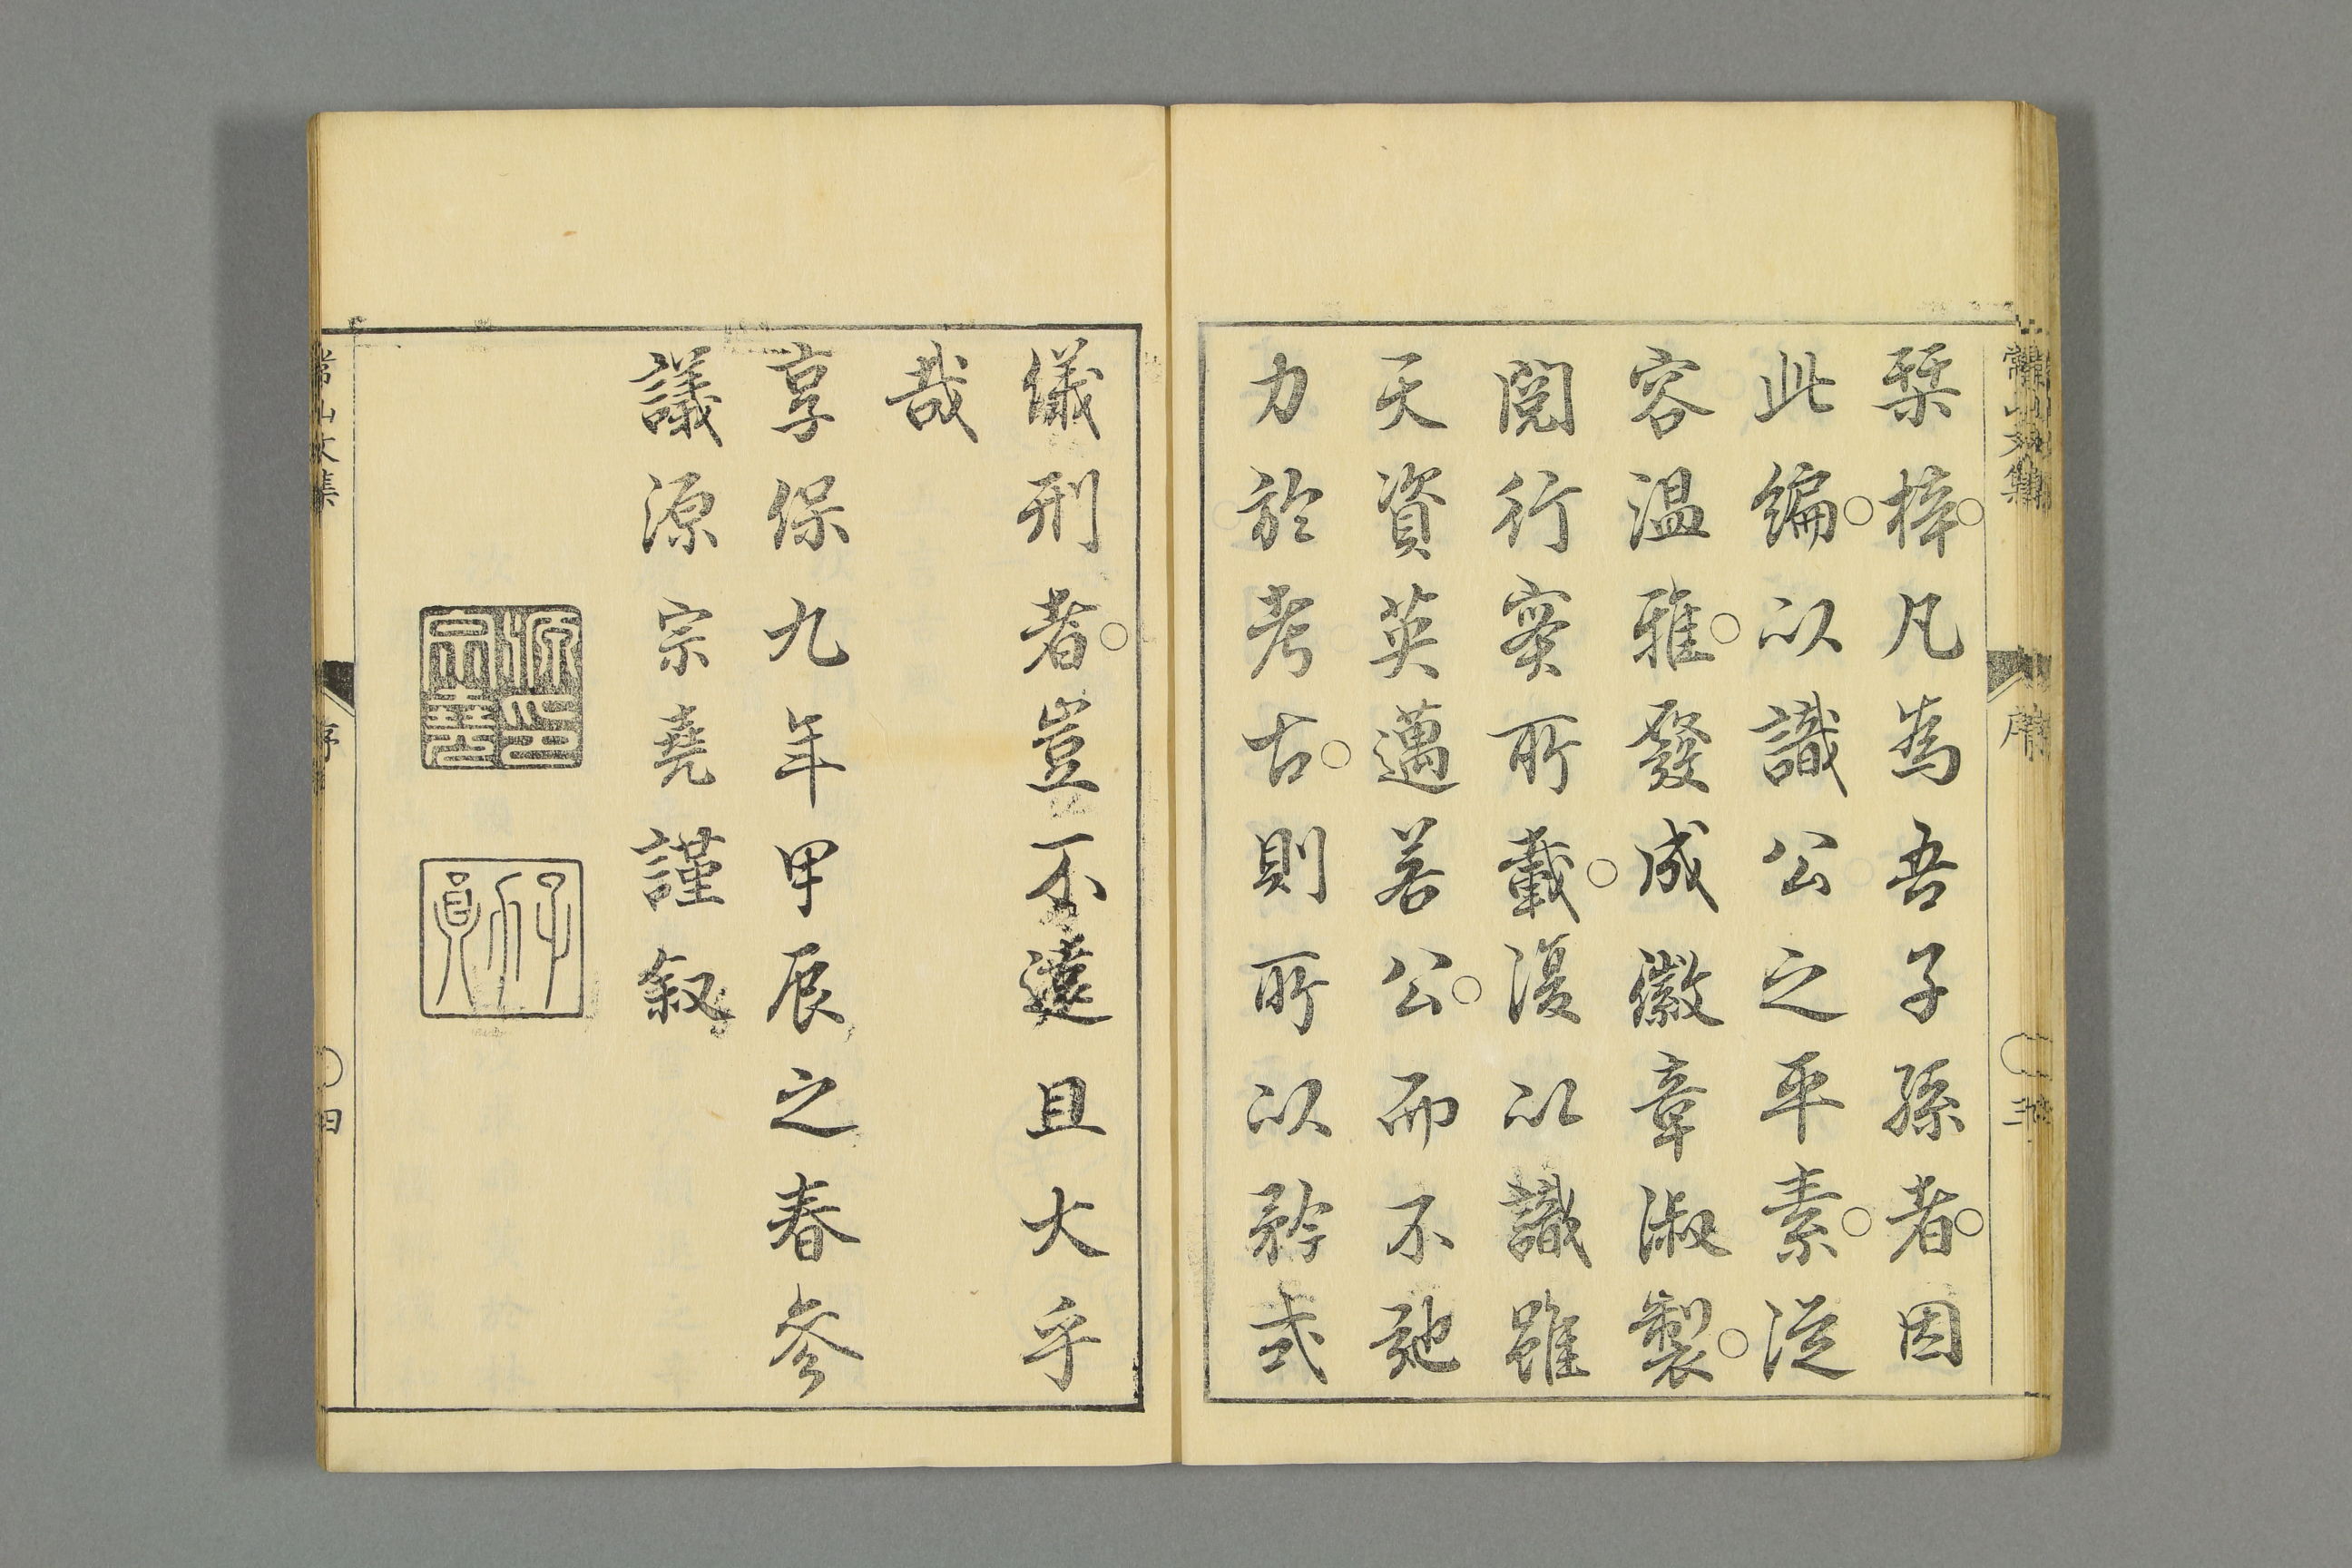 常山文集
序
三
栞梓○凡為吾子孫者○因
此編○以識公之平素○從
容温雅○發成徽章淑製○
閲行實所載○復以識雖
天資英邁若公○而不弛
力於考古○則所以矜式
儀刑者○豈不遠且大乎
哉
享保九年甲辰之春參
議源宗堯謹叙
常山文集
序
四